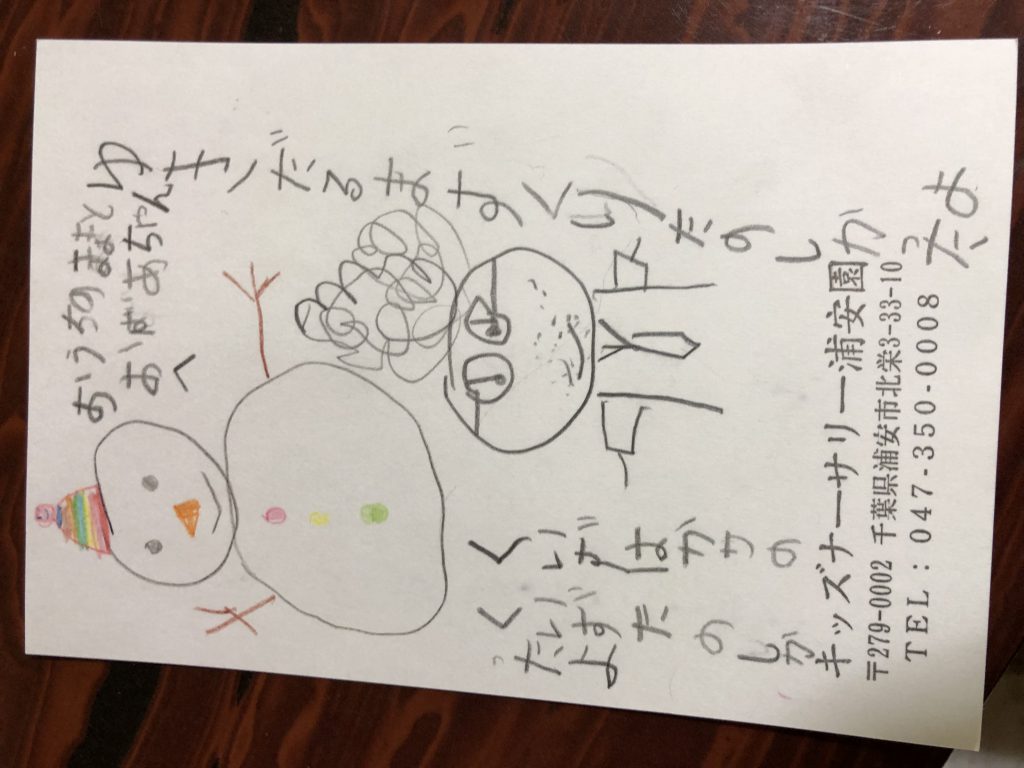 ゆきだるまずくりたのしかったよ
おうちのままと
おばあちゃん
へ
くいず
くいずたのしか
ったよ
キッズナーサリー浦安園
〒279-0002 千葉県浦安市北栄3-33-10
TEL：047-350-0008